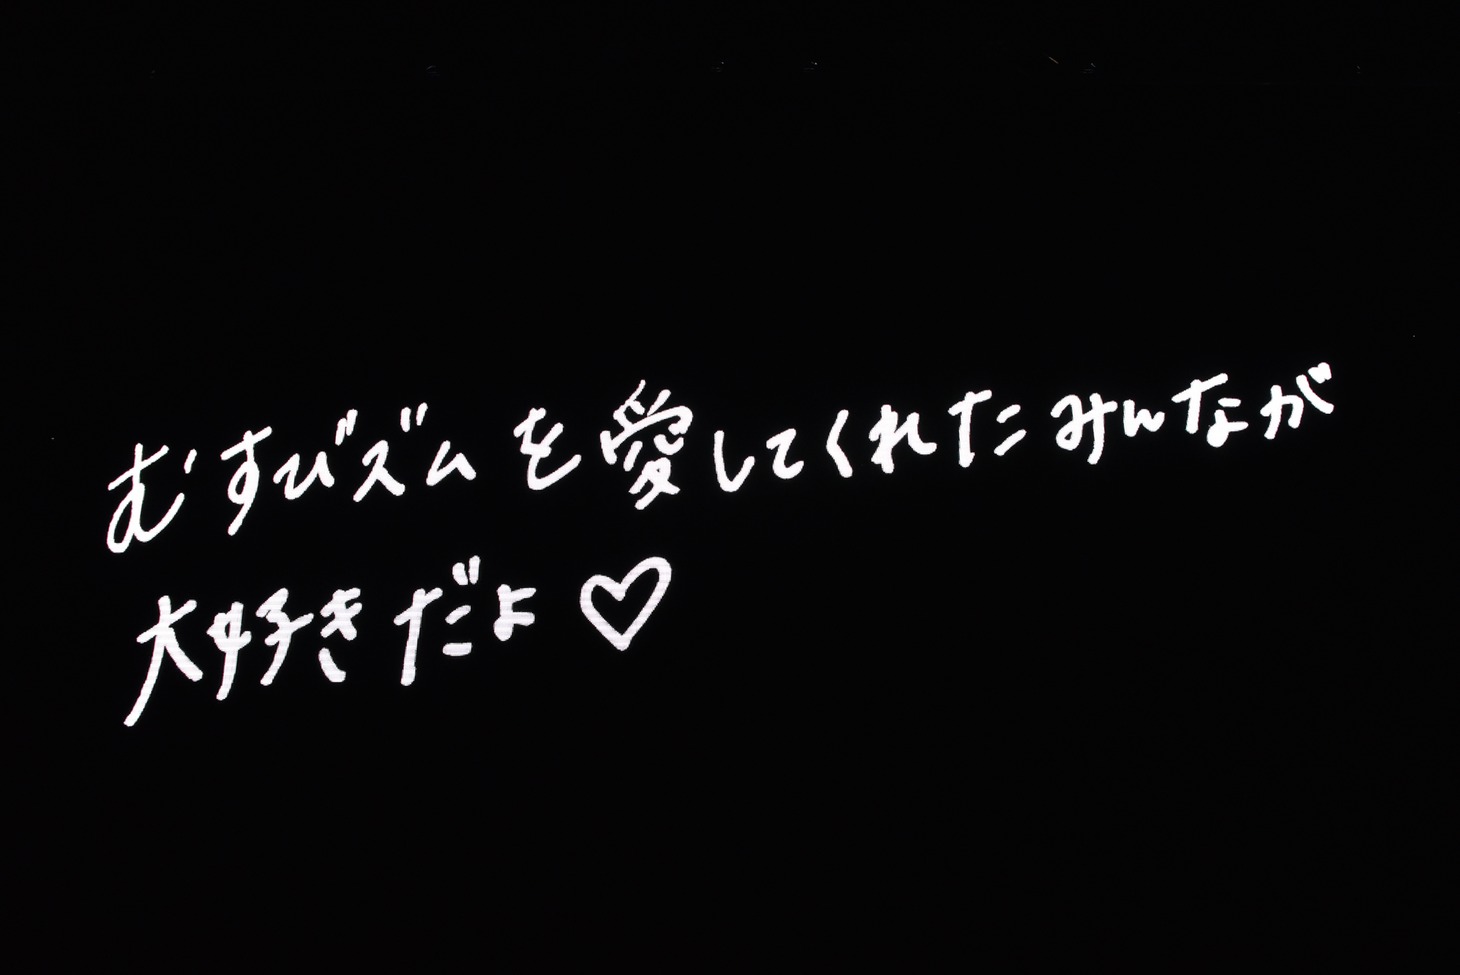 むすびズムを愛してくれたみんなが
大好きだよ♡